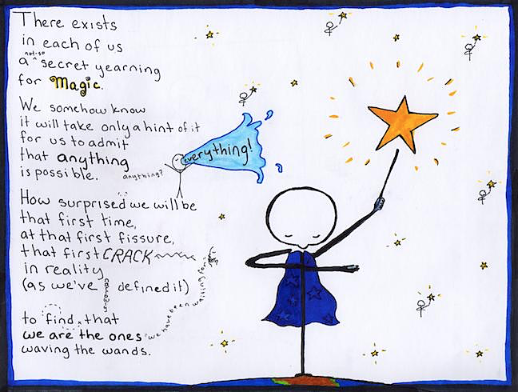 There exists
in each of us
a not-so secret yearning
for Magic.
We somehow know
it will take only a hint of it
for us to admit
that anything
is possible.
anything?
everything!
How surprised we will be
that first time,
at that first fissure,
that first CRACK
in reality
(as we've defined it)
to find that
we are the ones
waving the wands.